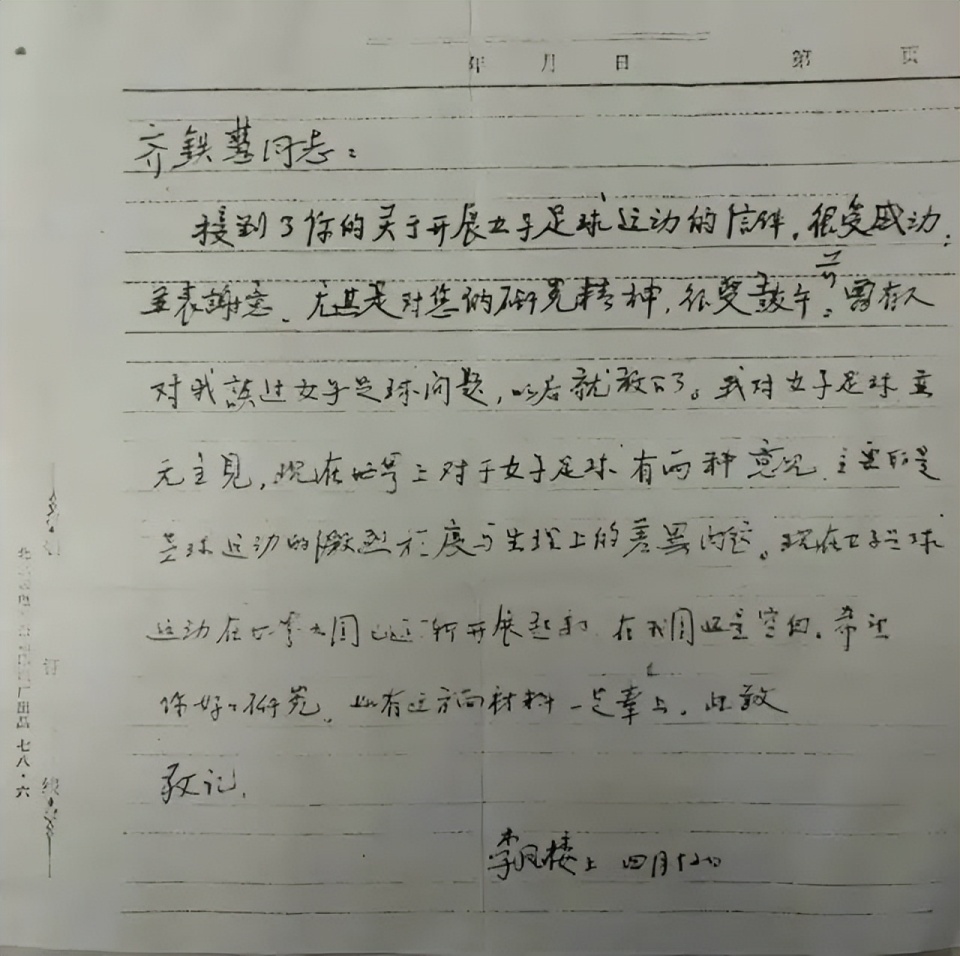 年 月 日 第 页
齐铁慧同志：
接到了你的关于开展女子足球运动的信件，很受感动，
並表謝意、尤其是对您的研究精神，很受鼓午；曾有人
对我談过女子足球问题，以后就放下了。我对女子足球並
无主見，现在世界上对于女子足球有两种意见，主要的是
足球运动的激烈程度与生理上的差異问题。现在女子足球
运动在世界各国已逐渐开展起来，在我国还是空白。希望
你好好研究，如有这方面材料一定奉上。此致
敬礼，
李凤楼上 四月
订 线
厂出品 七八·六